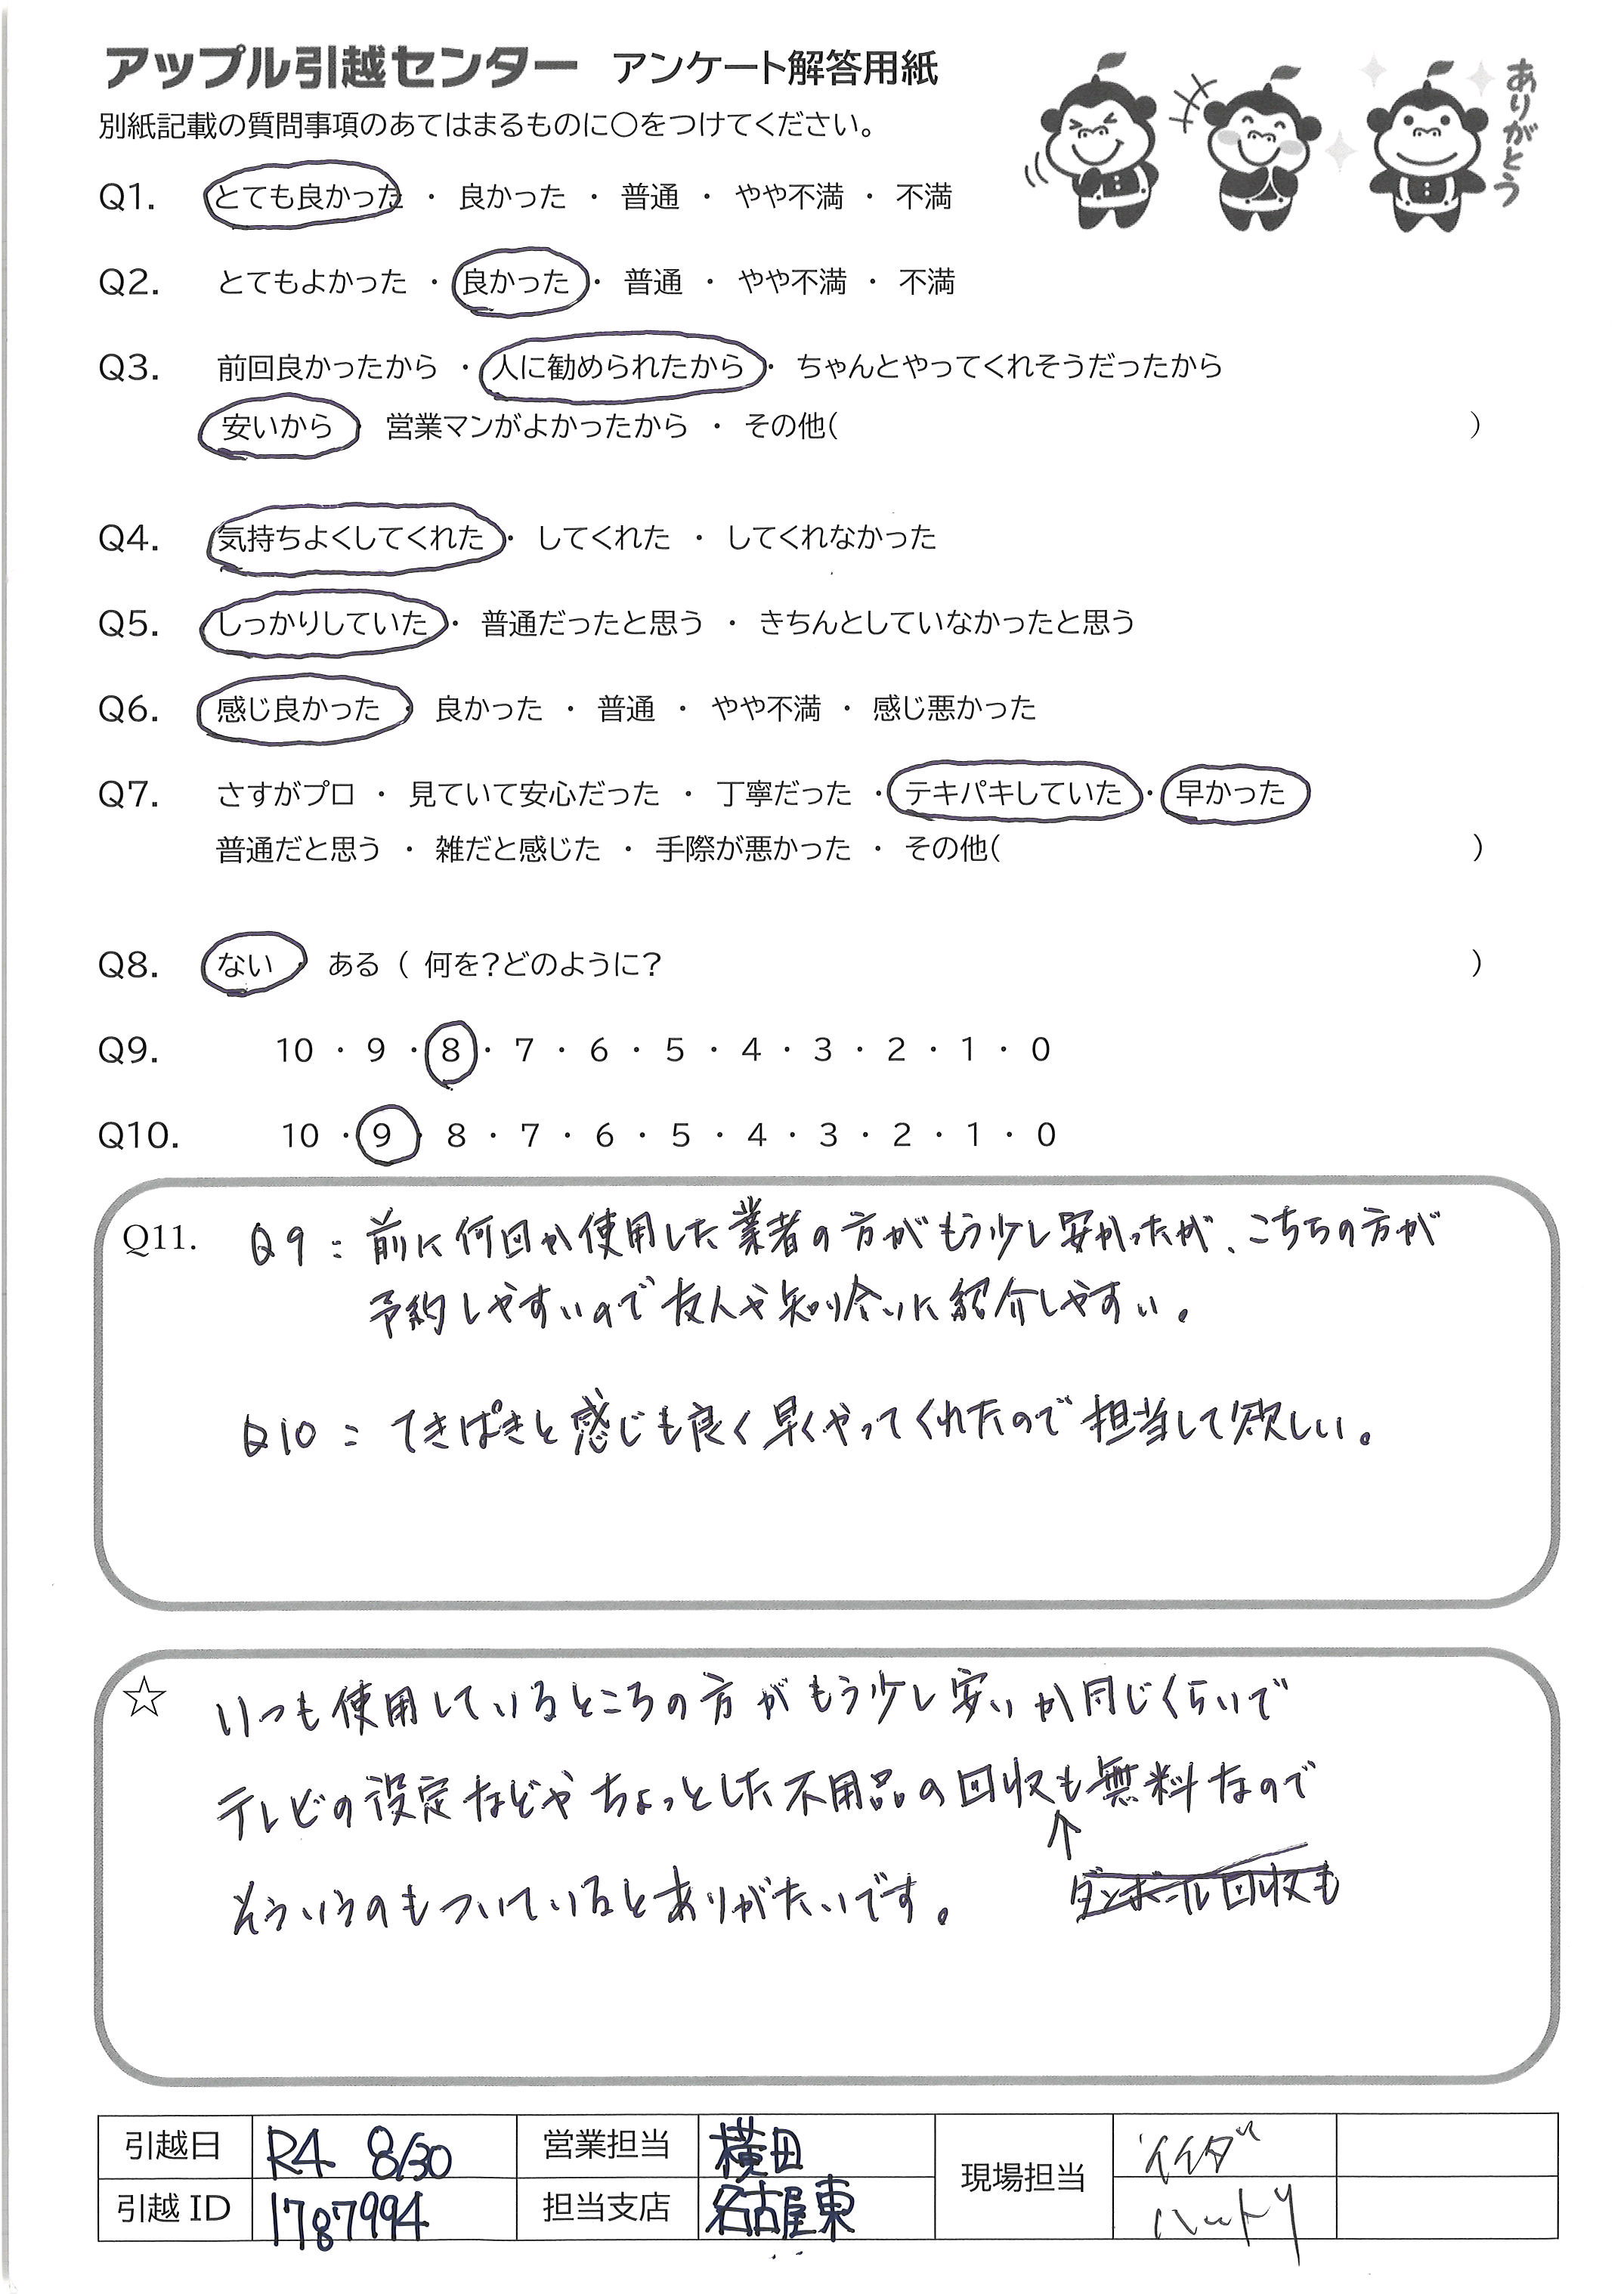 アップル引越センター アンケート解答用紙
ありがとう
別紙記載の質問事項のあてはまるものに○をつけてください。
Q1. とても良かった ・ 良かった ・ 普通 ・ やや不満 ・ 不満
Q2. とてもよかった ・ 良かった ・ 普通 ・ やや不満 ・ 不満
Q3. 前回良かったから ・ 人に勧められたから ・ ちゃんとやってくれそうだったから
安いから 営業マンがよかったから ・ その他( )
Q4. 気持ちよくしてくれた ・ してくれた ・ してくれなかった
Q5. しっかりしていた ・ 普通だったと思う ・ きちんとしていなかったと思う
Q6. 感じ良かった ・ 良かった ・ 普通 ・ やや不満 ・ 感じ悪かった
Q7. さすがプロ ・ 見ていて安心だった ・ 丁寧だった ・ テキパキしていた ・ 早かった
普通だと思う ・ 雑だと感じた ・ 手際が悪かった ・ その他( )
Q8. ない ・ ある ( 何を?どのように? )
Q9. 10 ・ 9 ・ 8 ・ 7 ・ 6 ・ 5 ・ 4 ・ 3 ・ 2 ・ 1 ・ 0
Q10. 10 ・ 9 ・ 8 ・ 7 ・ 6 ・ 5 ・ 4 ・ 3 ・ 2 ・ 1 ・ 0
Q11. Q9:前に何回か使用した業者の方がもう少し安かったが、こちらの方が
予約しやすいので友人や知り合いに紹介しやすい。
Q10:てきぱきと感じも良く早くやってくれたので担当して欲しい。
☆ いつも使用しているところの方がもう少し安いか同じくらいで
テレビの設定などやちょっとした不用品の回収も無料なので
↑
ダンボール回収も
そういうのもついているとありがたいです。
引越日 R4 8/30 営業担当 横田 現場担当 イイダ
引越ID 1787994 担当支店 名古屋東 ハットリ